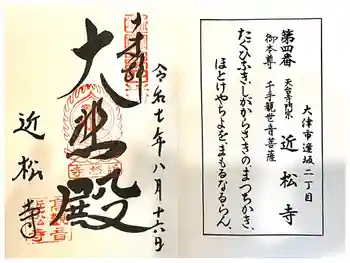 大津市逢坂二丁目
第四番
天台寺門宗
近松寺
御本尊
千手観世音菩薩
たぐひふき、しがからさきのまつちかき、
ほとけやちよを、まもるなるらん、
令和七年八月十六日
大悲殿
近松寺